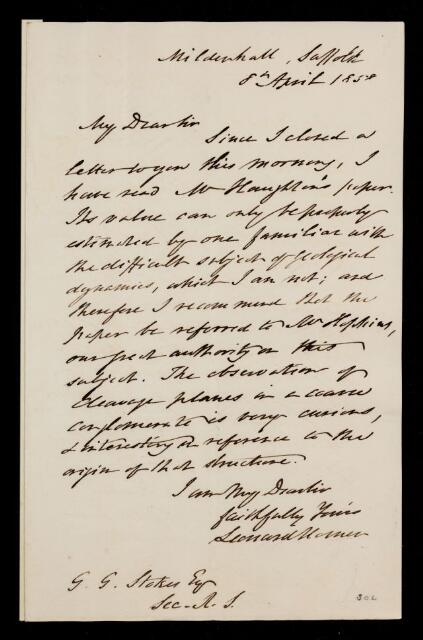 Mildenhall, Suffolk
8th April 1858
My Dear Sir
Since I closed a
letter to you this morning, I
have read Mr Haughton's paper.
Its value can only be properly
estimated by one familiar with
the difficult subject of geological
dynamics, which I am not; and
therefore I recommend that the
paper be referred to Mr Hopkins,
our great authority on this
subject. The observation of
Cleavage planes in a coarse
conglomerate is very curious,
& interesting in reference to the
origin of that structure.
I am My Dear Sir
faithfully Yours
Leonard Horner
G. G. Stokes Esq
Sec. R. S.
302